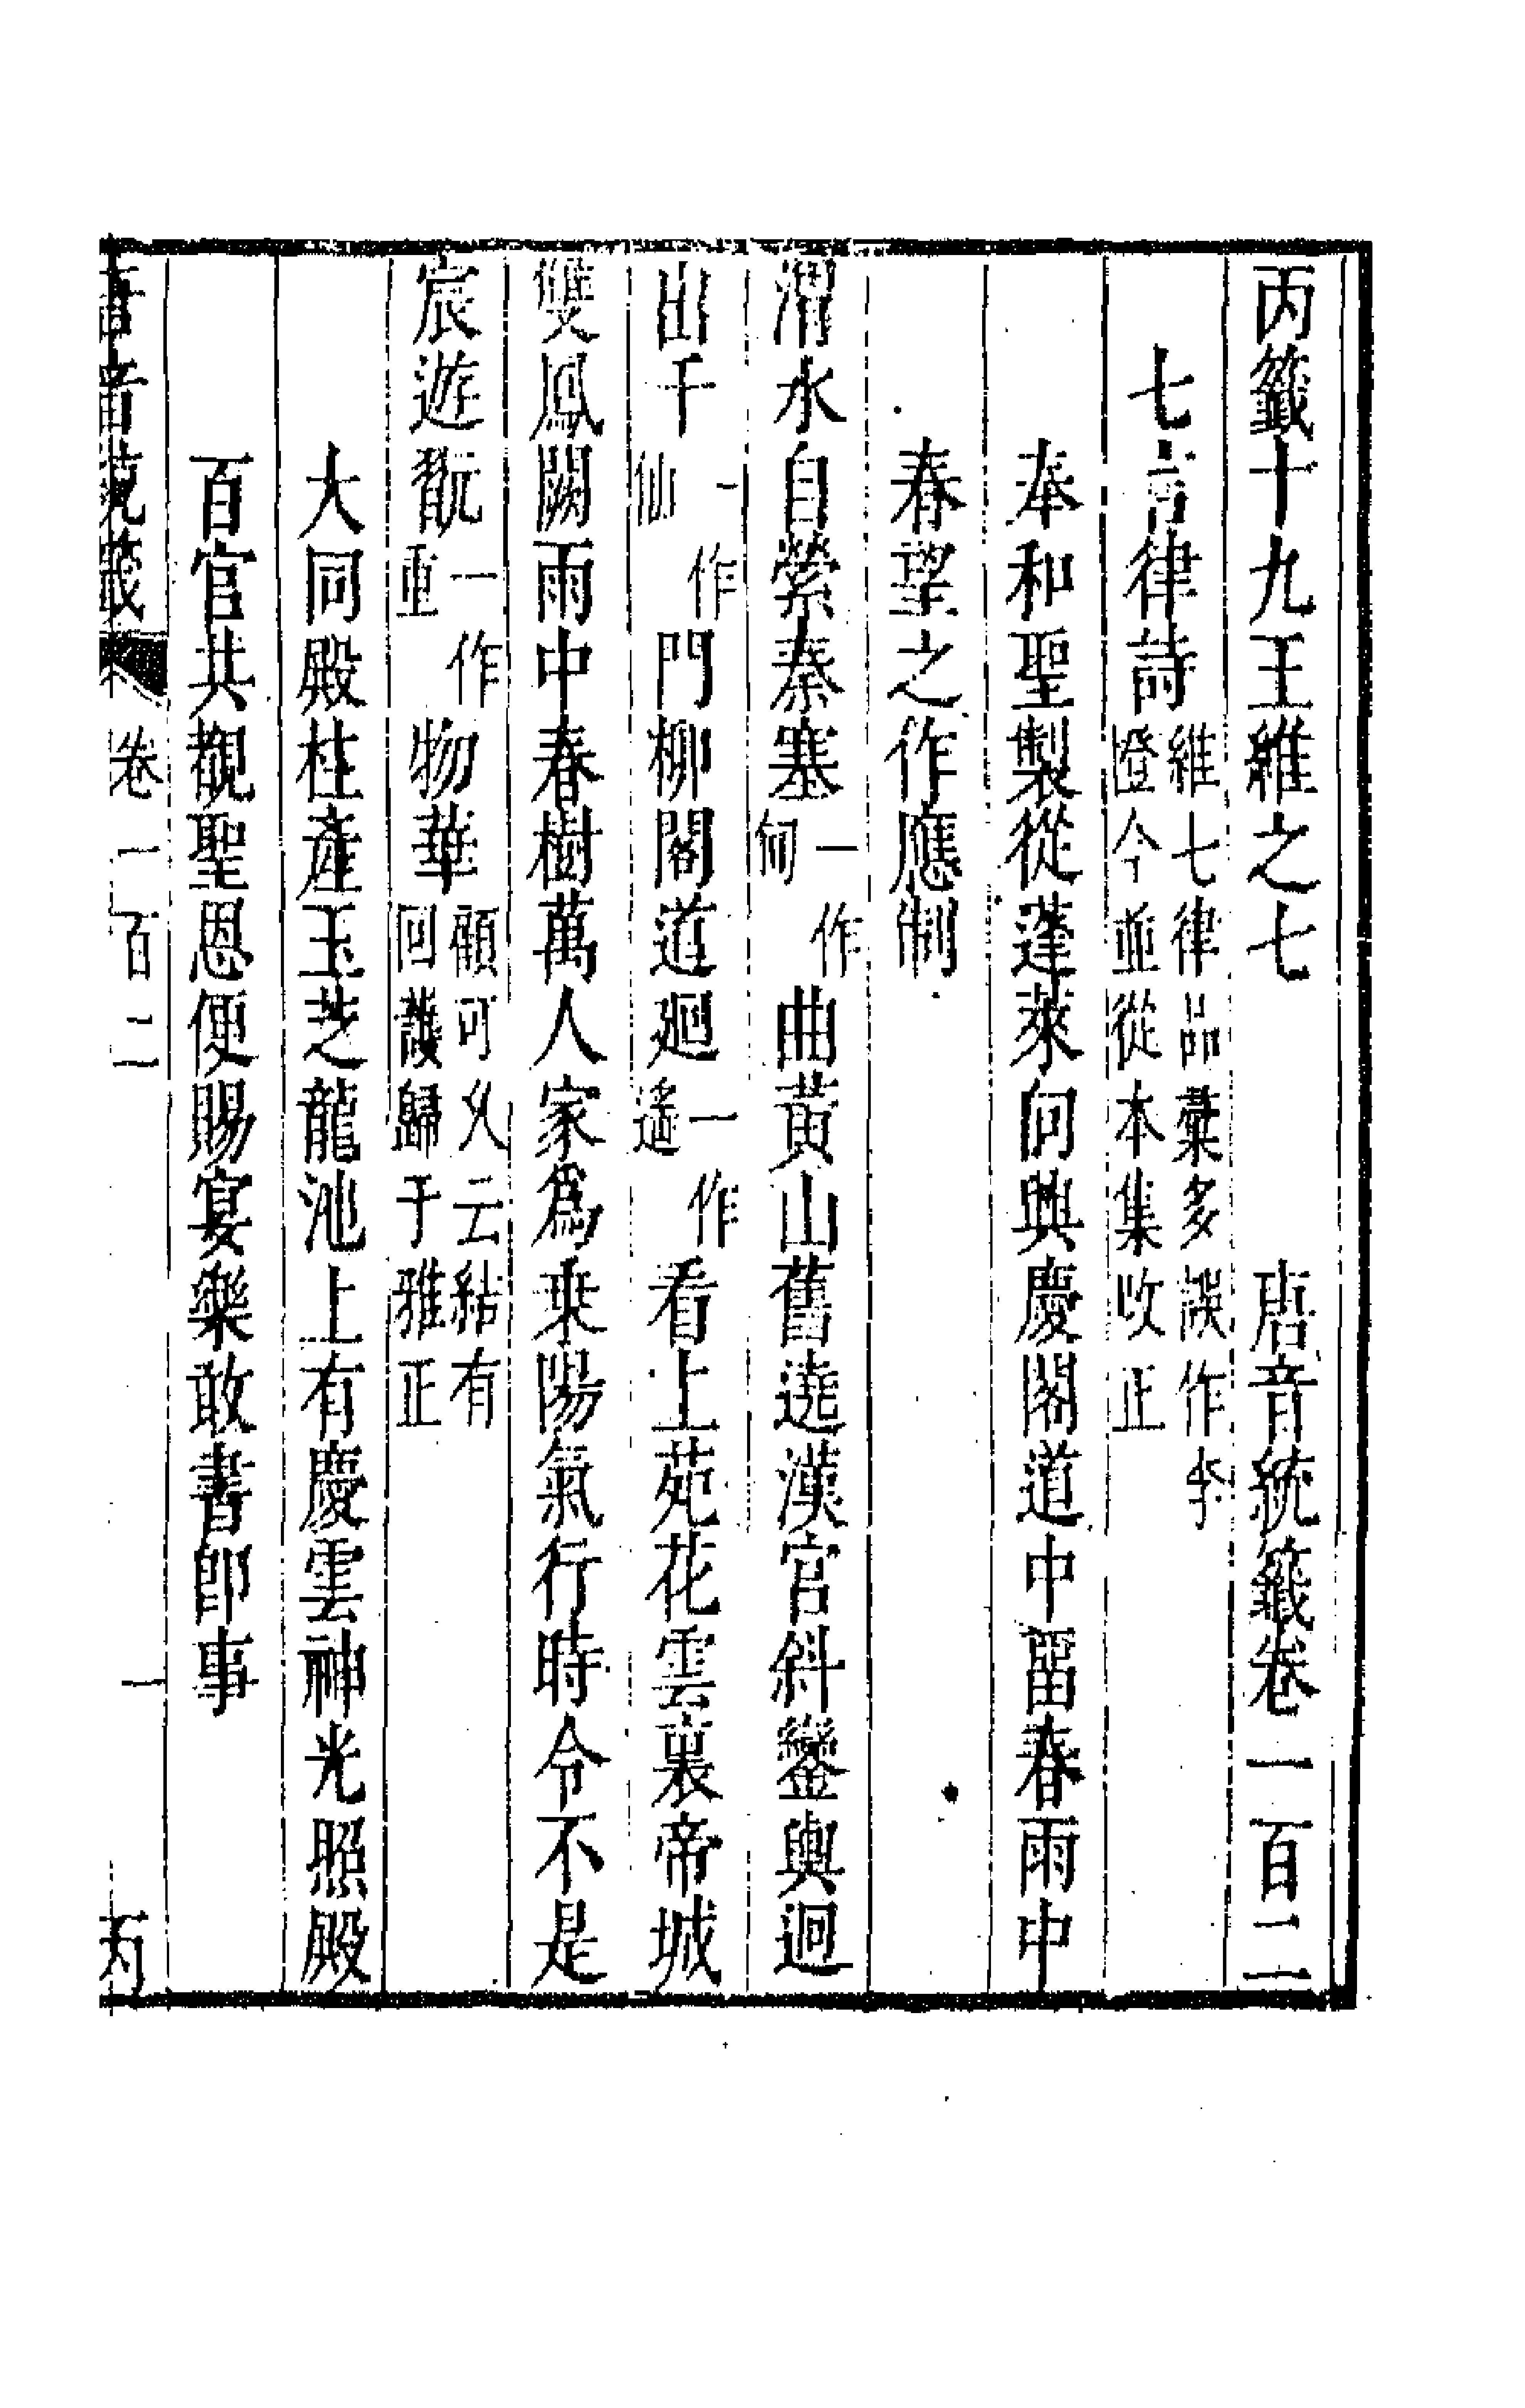 丙籤十九王維之七　唐音統籤卷一百二
七言律詩 維七律品彙多誤作李
憕今並從本集收正
奉和聖製從蓬萊向興慶閣道中留春雨中
春望之作應制
渭水自縈秦塞 一作向 曲黃山舊遶漢宮斜鑾輿迥
出千 一作仙 門柳閣道廻 一作遙 看上苑花雲裏帝城
雙鳳闕雨中春樹萬人家爲乘陽氣行時令不是
宸遊翫 一作重 物華 顧可久云結有
回護歸于雅正
大同殿柱產玉芝龍池上有慶雲神光照殿
百官共覩聖恩便賜宴樂敢書卽事
唐音統籤 卷一百二 一 丙